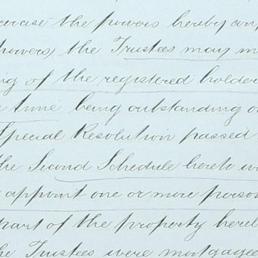 exercise the powers hereby con
powers the Trustees may m
ng of the registered holders
time being outstanding o
Special Resolution passed
the Second Schedule hereto
appoint one or more person
part of the property here
the Trustees were mortgagee